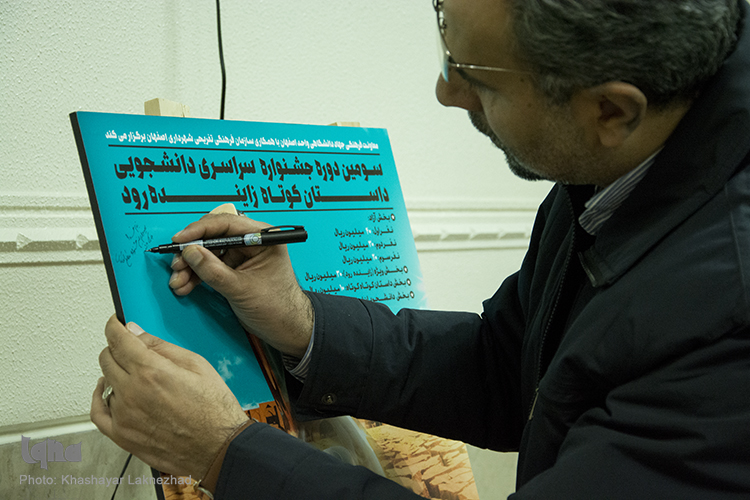 معاونت فرهنگی جهاد دانشگاهی واحد اصفهان با همکاری سازمان فرهنگی تفریحی شهرداری اصفهان برگزار می کند
سومین دوره جشنواره سراسری دانشجویی
داستان کوتاه زاینده رود
بخش آزاد:
نفر اول: ۴۰ میلیون ریال
نفر دوم: ۳۰ میلیون ریال
نفر سوم: ۲۰ میلیون ریال
بخش ویژه زاینده رود: ۳۰ میلیون ریال
بخش داستان کوتاه کوتاه: میلیون ریال
بخش دانشجو
iqna
Photo: Khashayar Laknezhad